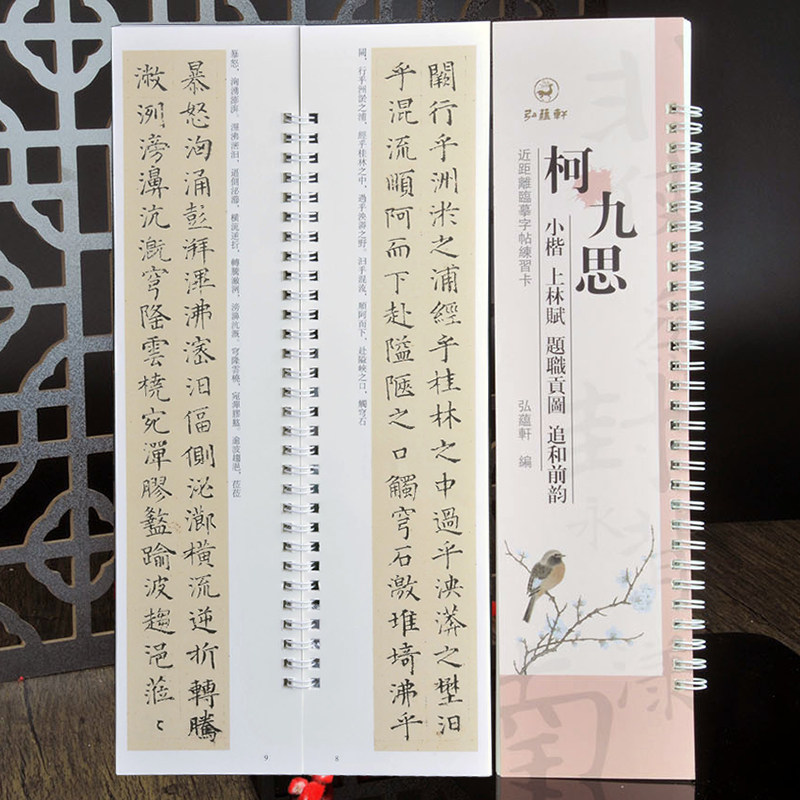 弘蘊軒
柯九思
小楷 上林賦 題職貢圖 追和前韵
近距離臨摹字帖練習卡
弘蘊軒 编
闕行乎洲淤之浦經乎桂林之中過乎泱漭之壄汨
乎混流順阿而下赴隘陿之口觸穹石激堆埼沸乎
闕，行乎洲淤之浦，經乎桂林之中，過乎泱漭之野，汨乎混流，順阿而下，赴隘峽之口，觸穹石
8
暴怒洶涌彭湃滭沸滵汨偪側泌瀄橫流逆折轉騰
潎洌滂濞沆溉穹隆雲橈宛潬膠盭踰波趨浥蒞〻
暴怒，洶湧澎湃，滭沸滵汨，逼側泌瀄，橫流逆折，轉騰潎洌，滂濞沆溉，穹隆雲橈，宛潬膠盭，逾波趨浥，莅莅
9